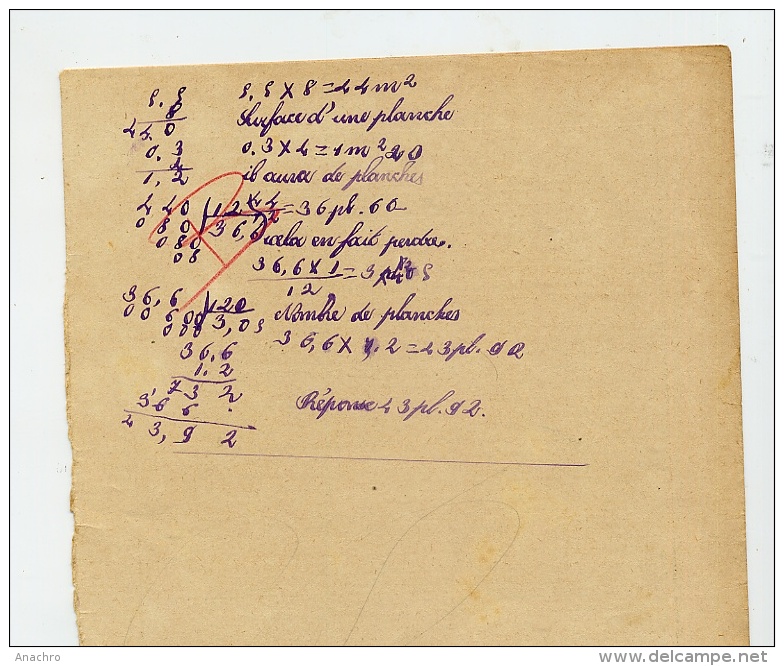 5.5 5.5 x 8 = 44 m²
8 Surface d'une planche
44.0
0.3 0.3 x 4 = 1 m² 20
4 il aura de planches
1,2
440 | 12 = 36 pl. 60
080 36,6
080 cela en fait perdre.
08 36,6 x 1 = 3 pl 05
12
36,6 | 120 Nombre de planches
00 600 3,05
000
36,6 36,6 x 1.2 = 43 pl. 92
1.2
732
366 . Réponse 43 pl. 92.
43,92
Anachro
www.delcampe.net